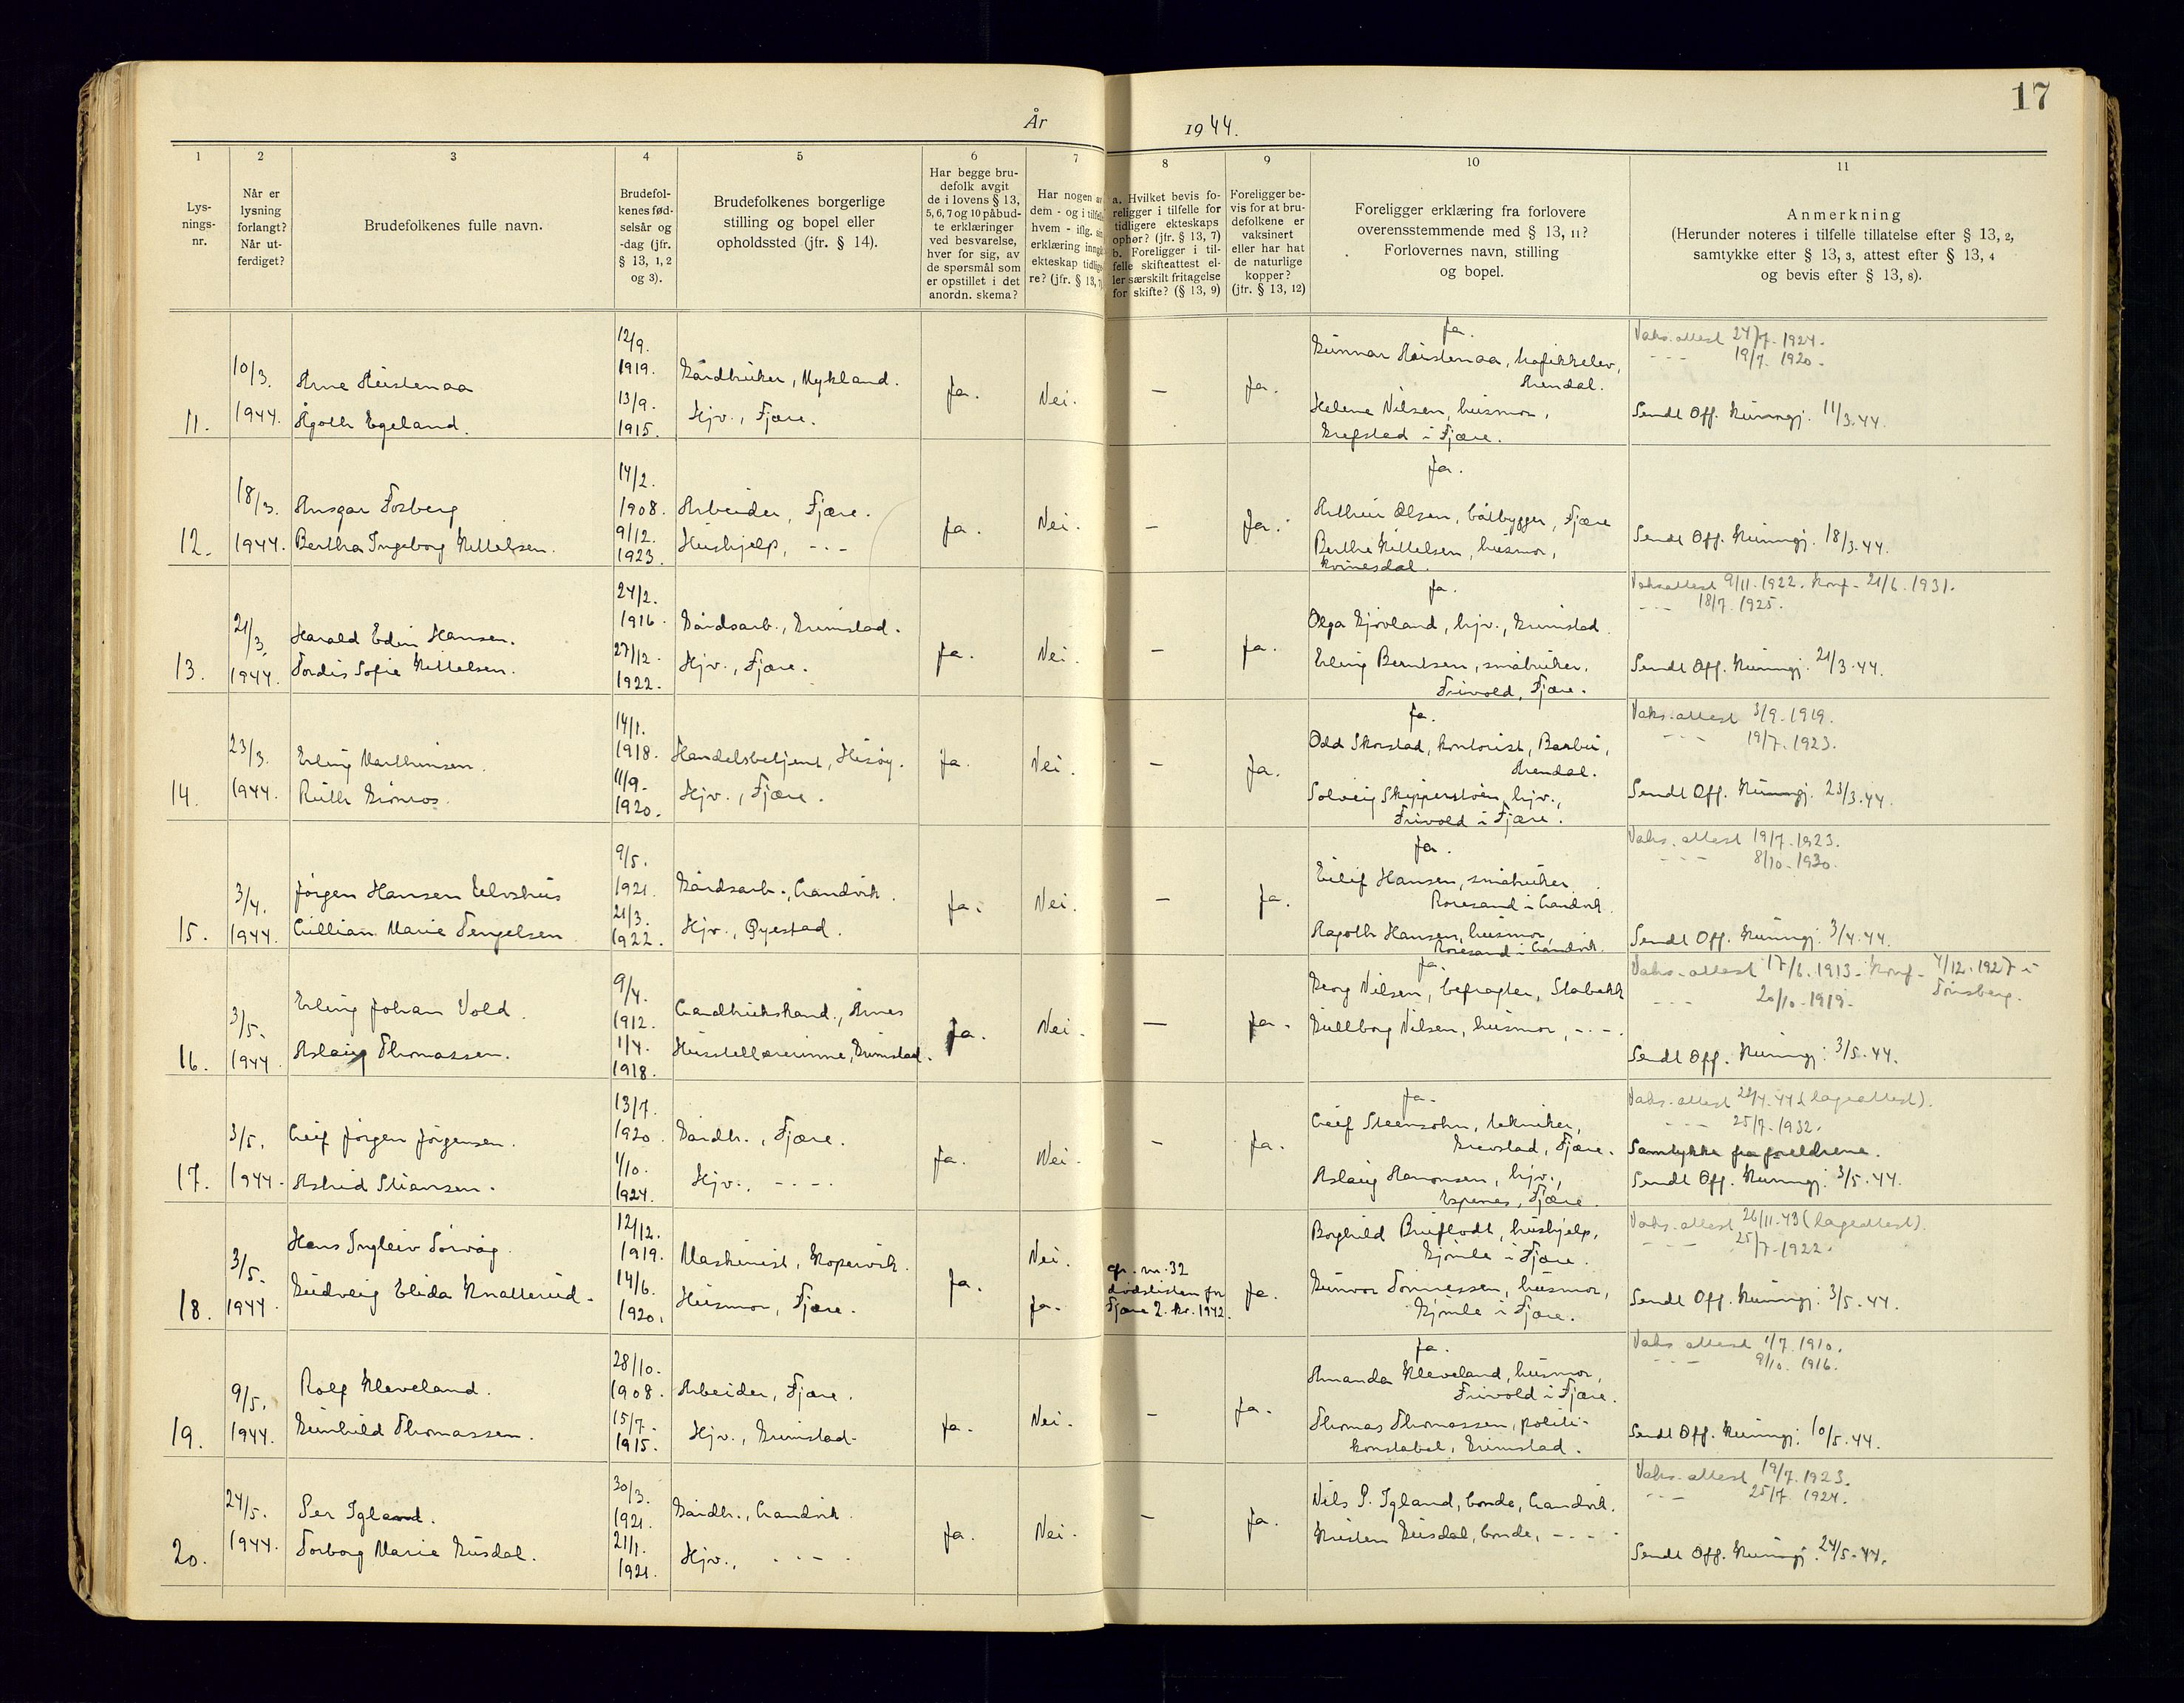 17
År 1944.
1 2 3 4 5 6 7 8 9 10 11
Lys-
nings-
nr.
Når er
lysning
forlangt?
Når ut-
ferdiget?
Brudefolkenes fulle navn.
Brudefol-
kenes fød-
selsår og
-dag (jfr.
§ 13, 1, 2
og 3).
Brudefolkenes borgerlige
stilling og bopel eller
opholdssted (jfr. § 14).
Har begge bru-
defolk avgit
de i lovens § 13,
5, 6, 7 og 10 påbud-
te erklæringer
ved besvarelse,
hver for sig, av
de spørsmål som
er opstillet i det
anordn. skema?
Har nogen av
dem - og i tilfelle
hvem - iflg. sin
erklæring inngått
ekteskap tidlige-
re? (jfr. § 13, 7)
a. Hvilket bevis fo-
religger i tilfelle for
tidligere ekteskaps
ophør? (jfr. § 13, 7)
b. Foreligger i til-
felle skifteattest el-
ler særskilt fritagelse
for skifte? (§ 13, 9)
Foreligger be-
vis for at bru-
defolkene er
vaksinert
eller har hat
de naturlige
kopper?
(jfr. § 13, 12)
Foreligger erklæring fra forlovere
overensstemmende med § 13, 11?
Forlovernes navn, stilling
og bopel.
Anmerkning
(Herunder noteres i tilfelle tillatelse efter § 13, 2,
samtykke efter § 13, 3, attest efter § 13, 4
og bevis efter § 13, 8).
11.
10/3.
1944.
Arne Austenaa
Ågoth Egeland.
12/9.
1919.
13/9.
1915.
Gårdbruker, Mykland.
Hjv., Fjære.
Ja.
Nei.
—
Ja.
Ja.
Gunnar Austenaa, trafikkelev,
Arendal.
Helene Nilsen, husmor,
Grefstad i Fjære.
Vaks.attest 24/7. 1924.
- - - 19/7. 1920.
Sendt Off. Kunngj. 11/3.44.
12.
18/3.
1944.
Ansgar Fosberg
Bertha Ingeborg Kittelsen.
14/2.
1908.
9/12.
1923.
Arbeider, Fjære.
Hushjelp, - - -
Ja.
Nei.
—
Ja.
Ja.
Arthur Olsen, båtbygger, Fjære
Berthe Kittelsen, husmor,
Kvinesdal.
Sendt Off. Kunngj. 18/3.44.
13.
21/3.
1944.
Harald Edin Hansen.
Tordis Sofie Kittelsen.
24/2.
1916.
27/12.
1922.
Gårdsarb., Grimstad.
Hjv., Fjære.
Ja.
Nei.
—
Ja.
Ja.
Olga Gjøvland, hjv., Grimstad
Erling Berntsen, småbruker,
Frivold, Fjære.
Vaksattest 9/11.1922. Konf. 21/6.1931.
- - - 18/7 1925.
Sendt Off. Kunngj. 21/3.44.
14.
23/3.
1944.
Erling Marthinsen.
Ruth Grønros.
14/1.
1918.
11/9.
1920.
Handelsbetjent, Hisøy.
Hjv., Fjære.
Ja.
Nei.
—
Ja.
Ja.
Odd Skorstad, kontorist, Barbu,
Arendal.
Solveig Skipperstøen, hjv.,
Frivold i Fjære.
Vaks.attest 3/9.1919.
- - - 19/7.1923.
Sendt Off. Kunngj. 23/3.44.
15.
3/4.
1944.
Jørgen Hansen Elvshus
Lillian Marie Tengelsen
9/5.
1921.
21/3.
1922.
Gårdsarb., Landvik.
Hjv., Øyestad.
Ja.
Nei.
—
Ja.
Ja.
Eilif Hansen, småbruker
Roresand i Landvik.
Ragoth Hansen, husmor,
Roresand i Landvik.
Vaks.attest 19/7.1923.
- - - 8/10.1930.
Sendt Off. Kunngj. 3/4.44.
16.
3/5.
1944
Erling Johan Vold.
Aslaug Thomassen.
9/4.
1912.
1/4.
1918.
Landbrukskand., Årnes
Husstellærerinne, Grimstad.
Ja.
Nei.
—
Ja.
Ja.
Georg Nilsen, befragter, Stabekk
Gullborg Nilsen, husmor, - - -
Vaks.attest 17/6.1913. Konf. 4/12.1927 i
Tønsberg.
- - - 20/10.1919.
Sendt Off. Kunngj. 3/5.44.
17.
3/5.
1944.
Leif Jørgen Jørgensen.
Astrid Stiansen.
13/7.
1920.
1/10.
1924.
Gårdbr., Fjære.
Hjv., - - -
Ja.
Nei.
—
Ja.
Ja.
Leif Steensohn, tekniker,
Grevstad, Fjære.
Aslaug Aamonsen, hjv.,
Espenes, Fjære.
Vaks.attest 28/4.44 (lægeattest).
- - - 25/7.1932.
Samtykke fra foreldrene.
Sendt Off. Kunngj. 3/5.44.
18.
3/5.
1944
Hans Ingleiv Sørvåg.
Gudveig Elida Knatterud.
12/12.
1919.
14/6.
1920.
Maskinist, Kopervik.
Husmor, Fjære.
Ja.
Nei.
Ja.
gr. nr. 32
dødslisten for
Fjære 2. kv. 1942.
Ja.
Borghild Bruflodt, hushjelp,
Gjømle i Fjære.
Gunvor Tønnessen, husmor,
Gjømle i Fjære.
Vaks.attest 26/11.43 (lægeattest).
- - - 25/7.1922.
Sendt Off. Kunngj. 3/5.44.
19.
9/5.
1944.
Rolf Kleveland.
Gunhild Thomassen.
28/10.
1908.
15/7.
1915.
Arbeider, Fjære.
Hjv., Grimstad.
Ja.
Nei.
—
Ja.
Ja.
Amanda Kleveland, husmor,
Frivold i Fjære.
Thomas Thomassen, politi-
konstabel, Grimstad.
Vaks.attest 1/7.1910.
- - - 9/10.1916.
Sendt Off. Kunngj. 10/5.44.
20.
24/5.
1944.
Per Igland.
Torborg Marie Gusdal.
30/3.
1921.
21/1.
1921.
Gårdbr., Landvik.
Hjv., - - -
Ja.
Nei.
—
Ja.
Nils P. Igland, bonde, Landvik.
Kristen Gusdal, bonde, - - -
Vaks.attest 19/7.1923.
- - - 25/7 1924.
Sendt Off. Kunngj. 24/5.44.